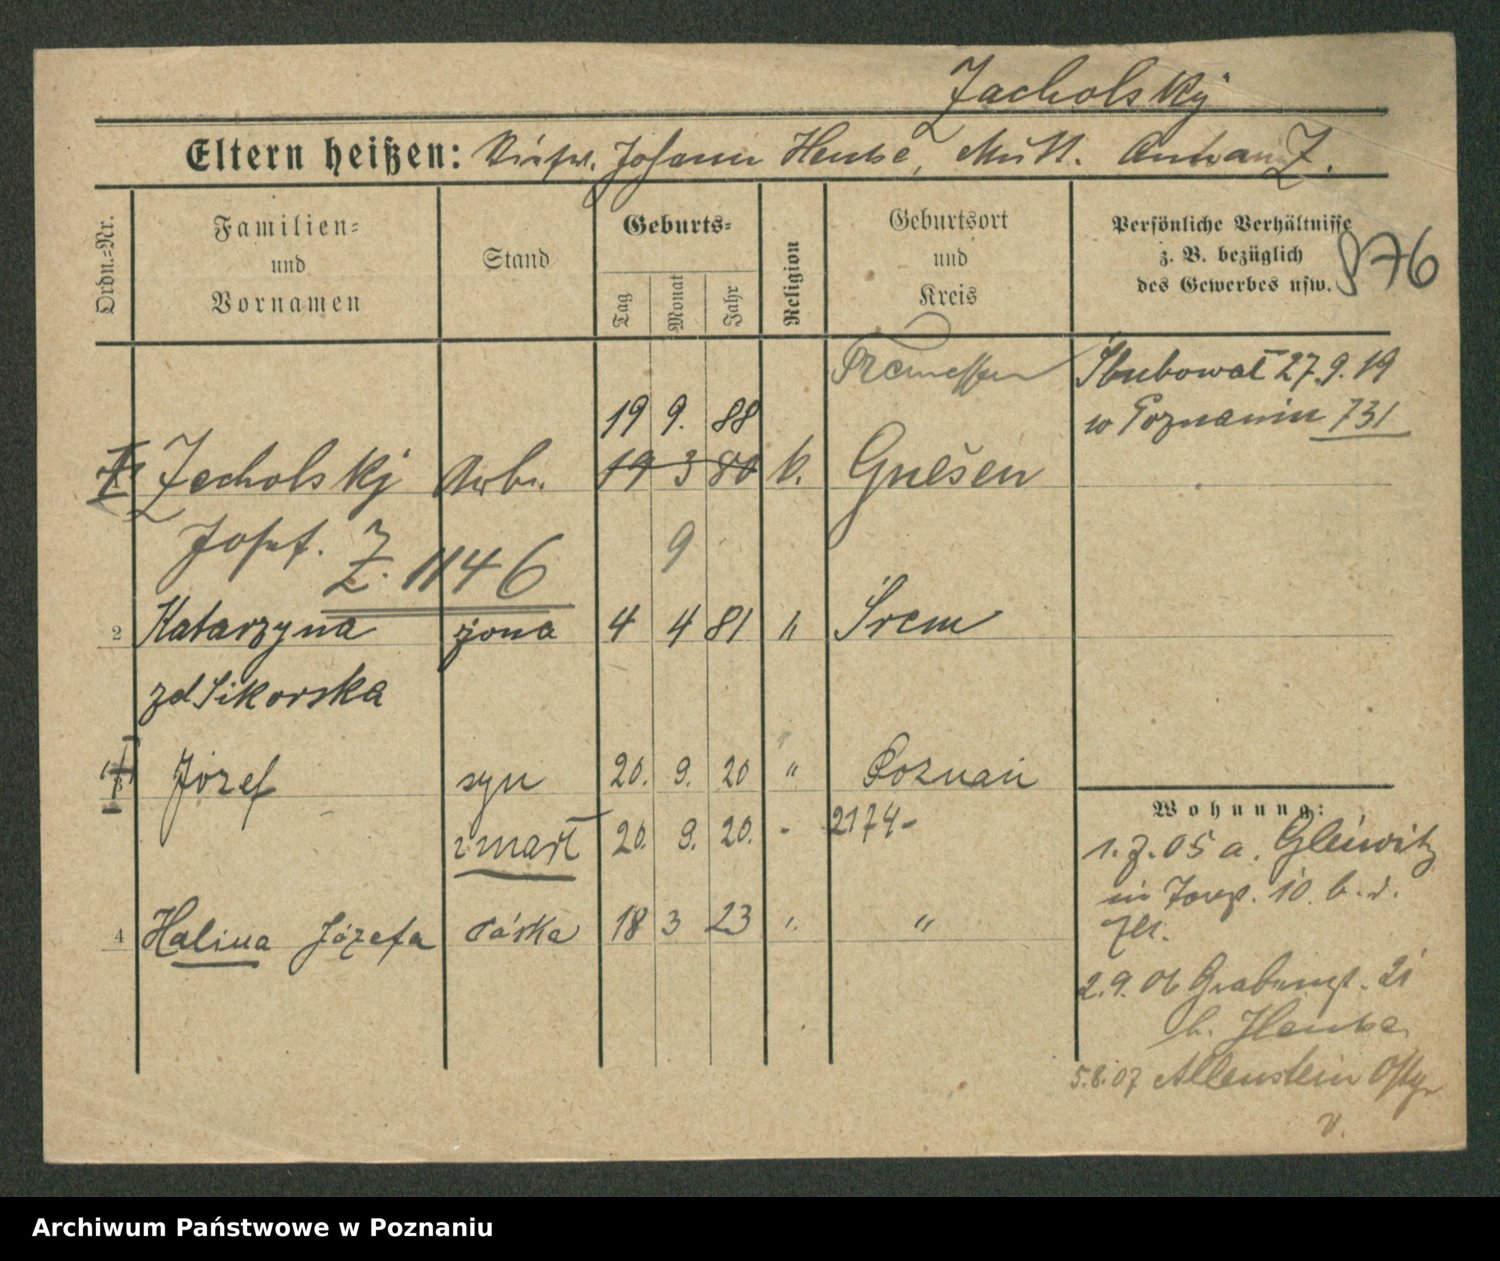 Zacholsky
Eltern heißen: Johann Hentse, Mutt. Z.
Ordn.-Nr.
Familien-
und
Vornamen
Stand
Geburts-
Tag
Monat
Jahr
Religion
Geburtsort
und
Kreis
Persönliche Verhältnisse
z. B. bezüglich
des Gewerbes usw.
876
Tremessen
Ślubował 27.9.19
w Poznaniu 731
19 9. 88
Zacholsky Arb. 19 3 80 k. Gnesen
Josef. Z. 1146
9
2 Katarzyna żona 4 4 81 " Śrem
zd Sikorska
Józef syn 20. 9. 20 " Poznań
zmarł 20. 9. 20. - 2174-
4 Halina Józefa córka 18 3 23 " "
Wohnung:
1.7.05 a. Gleiwitz
10. b. d.
2.9.06 21
b. Hentse
5.8.07 Allenstein Ostpr
v.
Archiwum Państwowe w Poznaniu